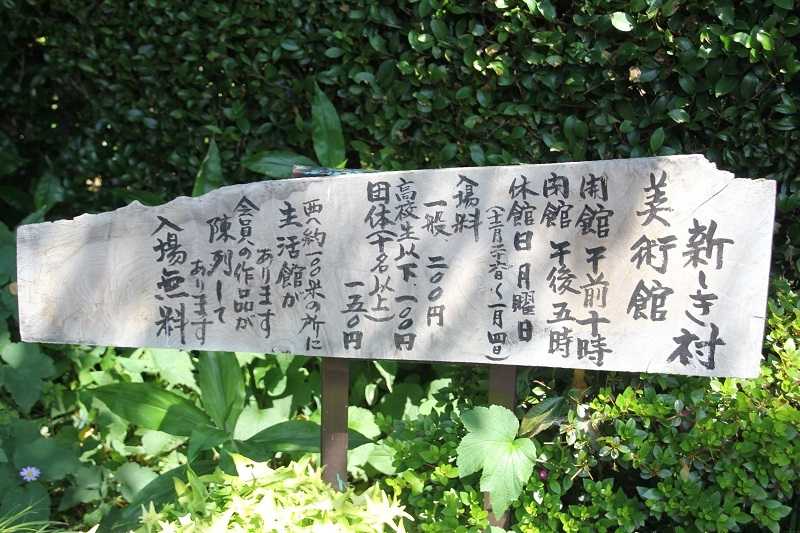 新しき村
美術館
開館 午前十時
閉館 午後五時
休館日 月曜日
(十二月二十六日〜一月四日)
入場料
一般、二〇〇円
高校生以下、一〇〇円
団体(十名以上)
一五〇円
西へ約一〇〇米の所に
生活館が
あります
会員への作品が
陳列して
あります
入場無料